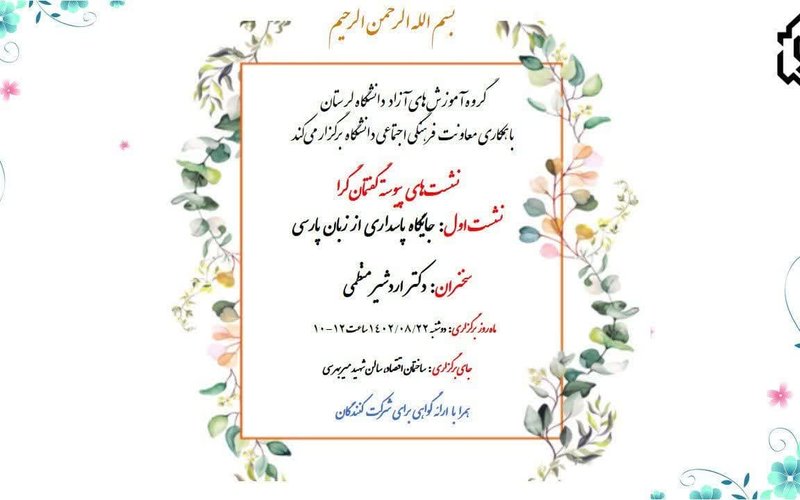 بسم الله الرحمن الرحیم
گروه آموزش‌های آزاد دانشگاه لرستان
با همکاری معاونت فرهنگی اجتماعی دانشگاه برگزار می‌کند
نشست‌های پیوسته گفتمان گرا
نشست اول: جایگاه پاسداری از زبان پارسی
سخنران: دکتر اردشیر منظمی
ماه روز برگزاری: دوشنبه ۱۴۰۲/۰۸/۲۲ ساعت ۱۲-۱۰
جای برگزاری: ساختمان اقتصاد، سالن شهید میربهرسی
همرا با ارائه گواهی برای شرکت کنندگان